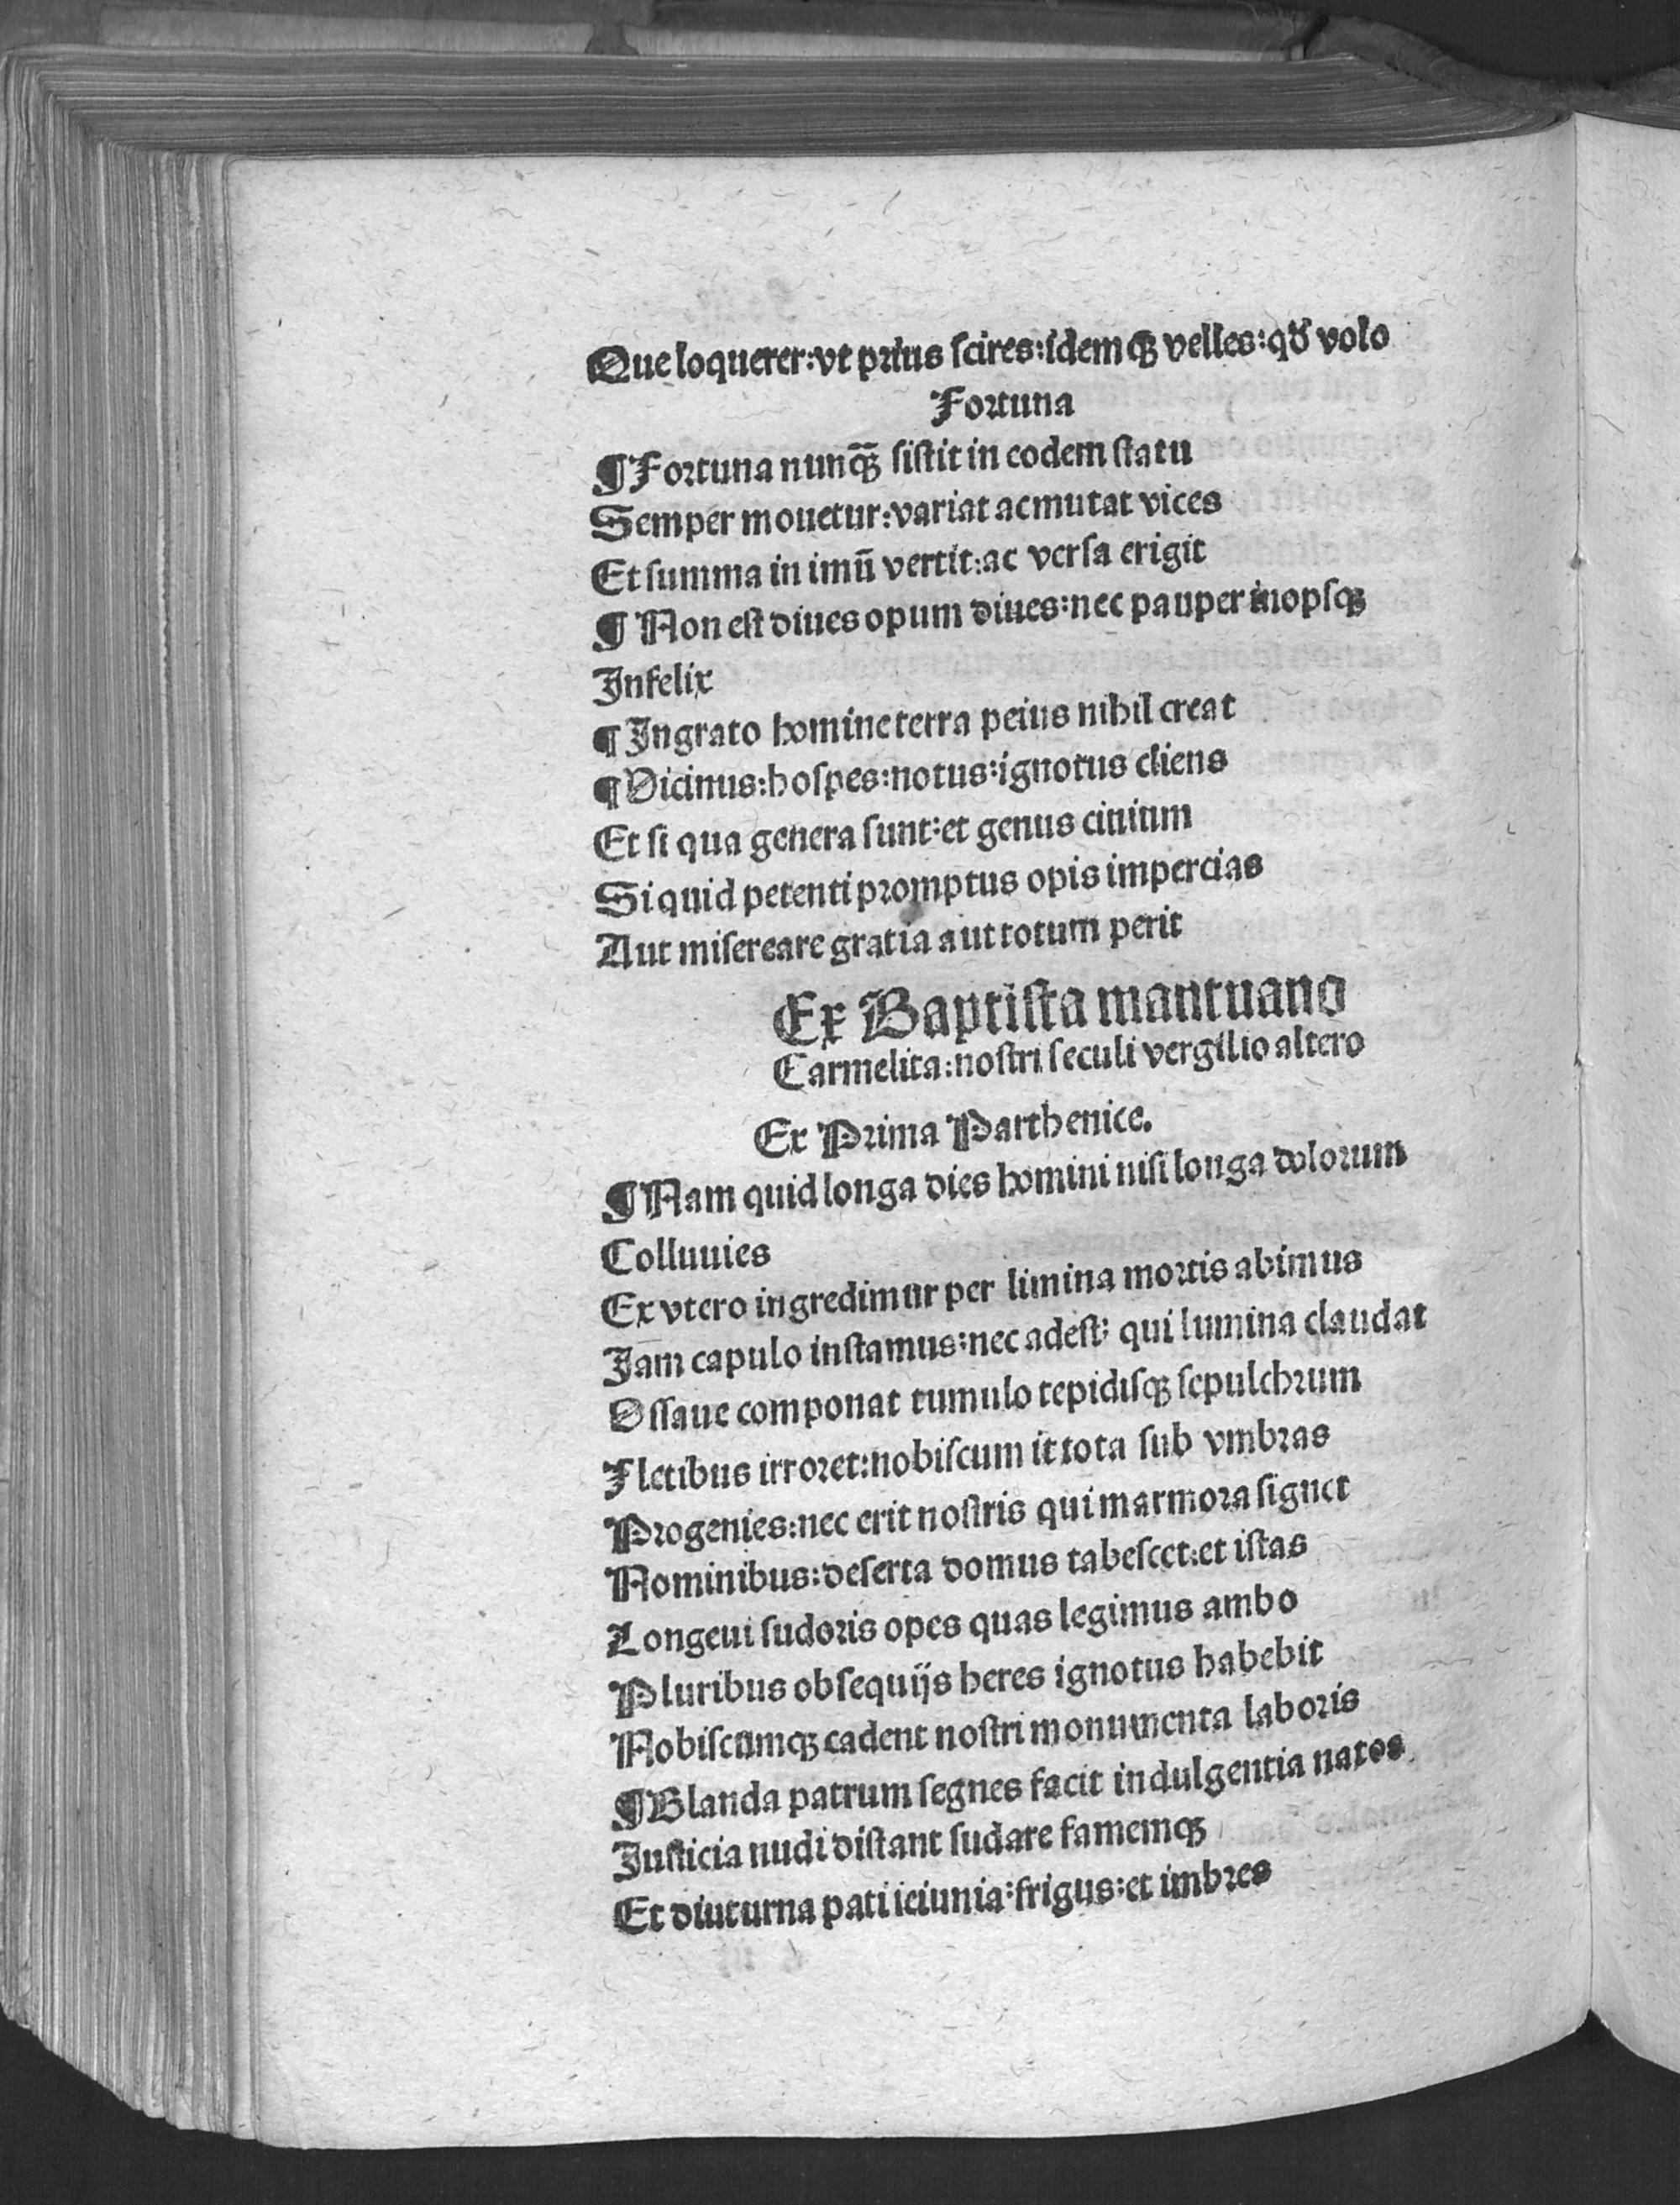 Que loquerer:vt prius ſcires:idem qꝫ velles:qď volo
Fortuna
¶Fortuna nunꝗ̃ ſiſtit in eodem ſtatu
Semper mouetur:variat ac mutat vices
Et ſumma in imū vertit:ac verſa erigit
¶ Non eſt diues opum diues:nec pauper inopſqꝫ
Infelix
¶Ingrato homine terra peius nihil creat
¶Vicinus:hoſpes:notus:ignotus cliens
Et ſi qua genera ſunt:et genus ciuium
Si quid petenti promptus opis impercias
Aut miſereare gratia aut totum perit
Ex Baptiſta mantuano
Carmelita:noſtri ſeculi vergilio altero
Ex Prima Parthenice.
¶Nam quid longa dies homini niſi longa dolorum
Colluuies
Ex vtero ingredimur per limina mortis abimus
Jam capulo inſtamus:nec adeſt: qui lumina claudat
Oſſaue componat tumulo tepidiſqꝫ ſepulchrum
Fletibus irroret:nobiſcum it tota ſub vmbras
Progenies:nec erit noſtris qui marmora ſignet
Nominibus:deſerta domus tabeſcet:et iſtas
Longeui ſudoris opes quas legimus ambo
Pluribus obſequijs heres ignotus habebit
Nobiſcumqꝫ cadent noſtri monumenta laboris
¶Blanda patrum ſegnes facit indulgentia natos
Juſticia nudi diſtant ſudare famemqꝫ
Et diuturna pati ieiunia:frigus:et imbres